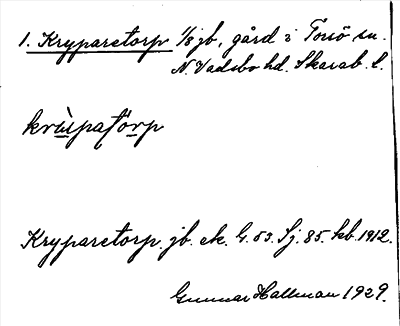 1. Kryparetorp 1/8 jb, gård i Torsö sn.
N. Vadsbo hd. Skarab. l.
krùpatörp
Kryparetorp. jb. ek. G. 53. Sj. 85. kb. 1912.
Gunnar Hallman 1929.